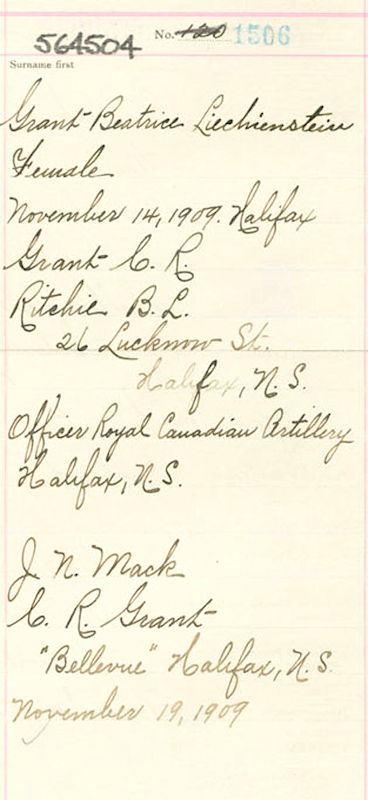 564504 No. 120 1506
Surname first
Grant Beatrice Liechienstein
Female
November 14, 1909. Halifax
Grant C. R.
Ritchie B. L.
26 Lucknow St.
Halifax, N.S.
Officer Royal Canadian Artillery
Halifax, N.S.
J. N. Mack
C. R. Grant
"Bellevue" Halifax, N.S.
November 19, 1909